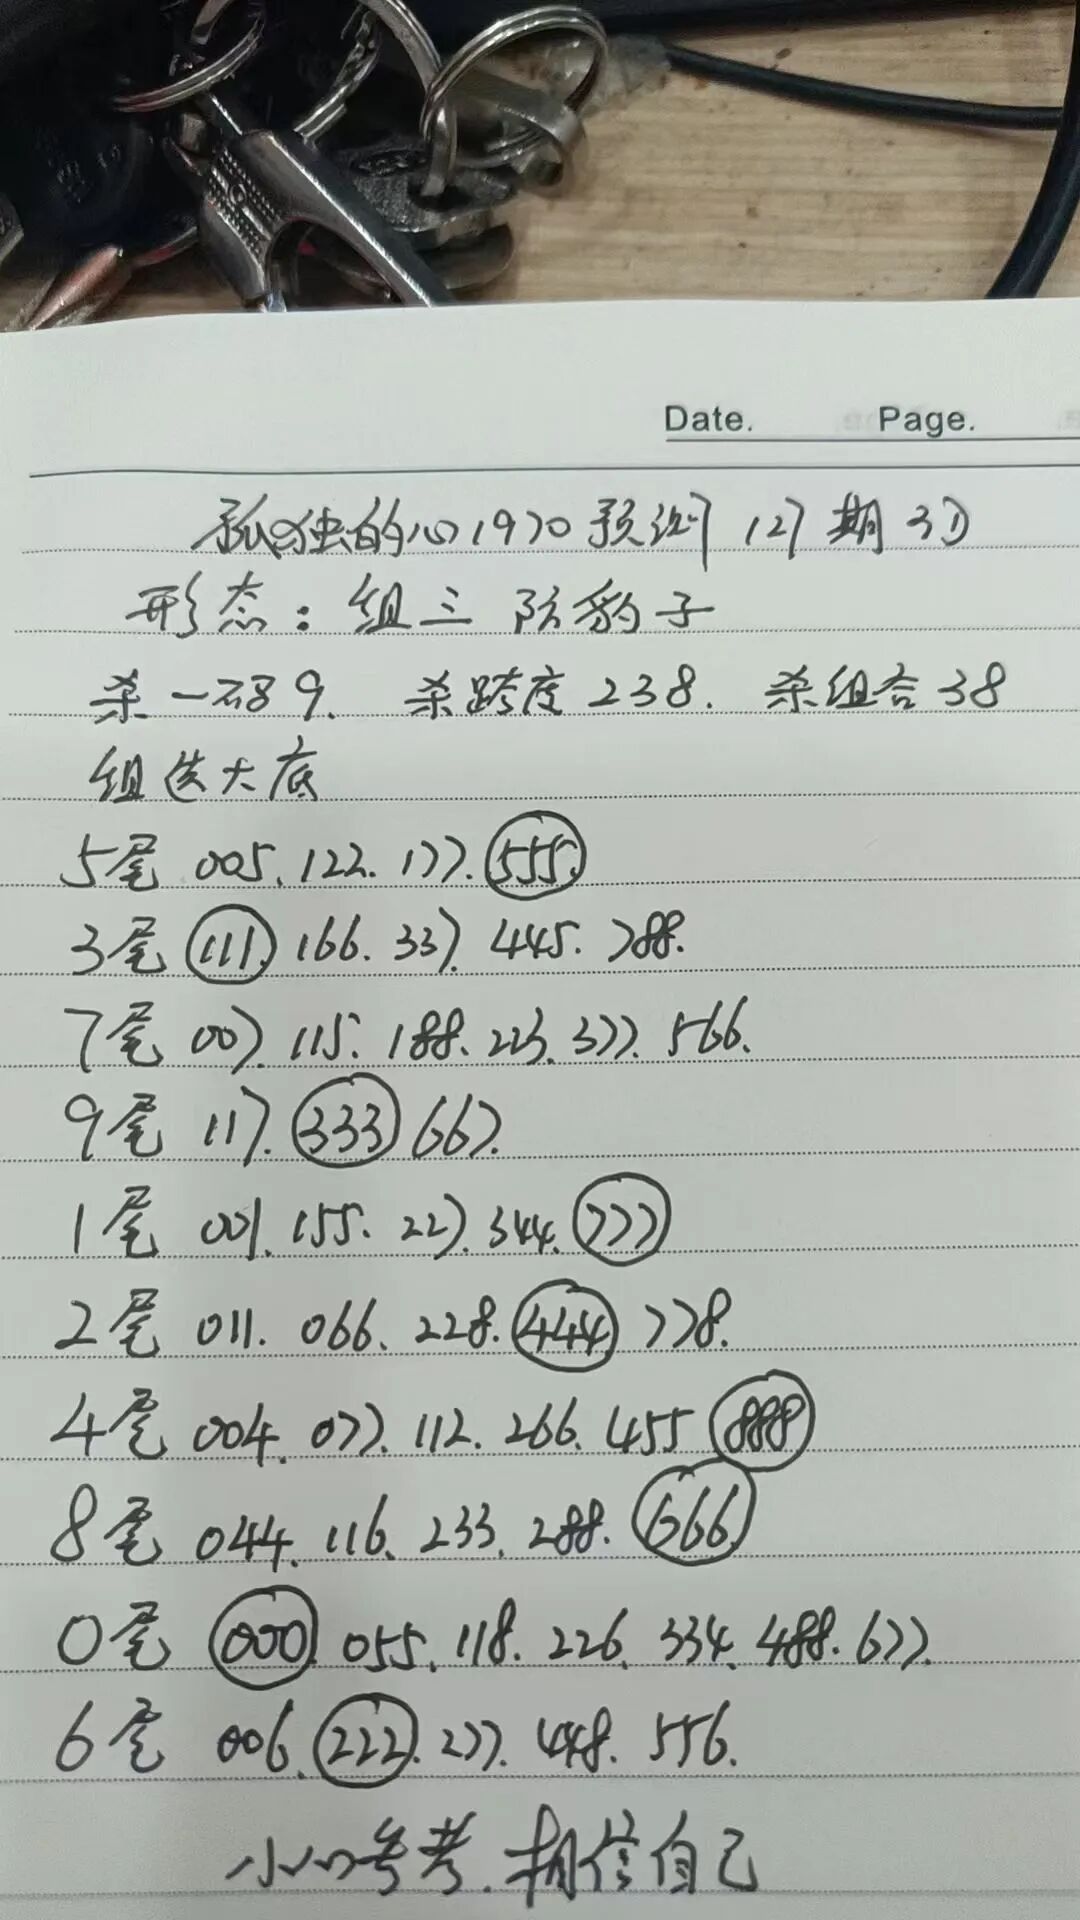 Date. Page.
孤独的心1970预测127期3D
形态：组三 防豹子
杀一码9. 杀跨度238. 杀组合38
组选大底
5尾 005. 122. 177. 555.
3尾 111. 166. 337. 445. 788.
7尾 007. 115. 188. 223. 377. 566.
9尾 117. 333 667.
1尾 001. 155. 227. 344. 777
2尾 011. 066. 228. 444 778.
4尾 004. 077. 112. 266. 455 888
8尾 044. 116. 233. 288. 666.
0尾 000. 055. 118. 226. 334. 488. 677.
6尾 006. 222. 277. 448. 556.
小心参考. 相信自己